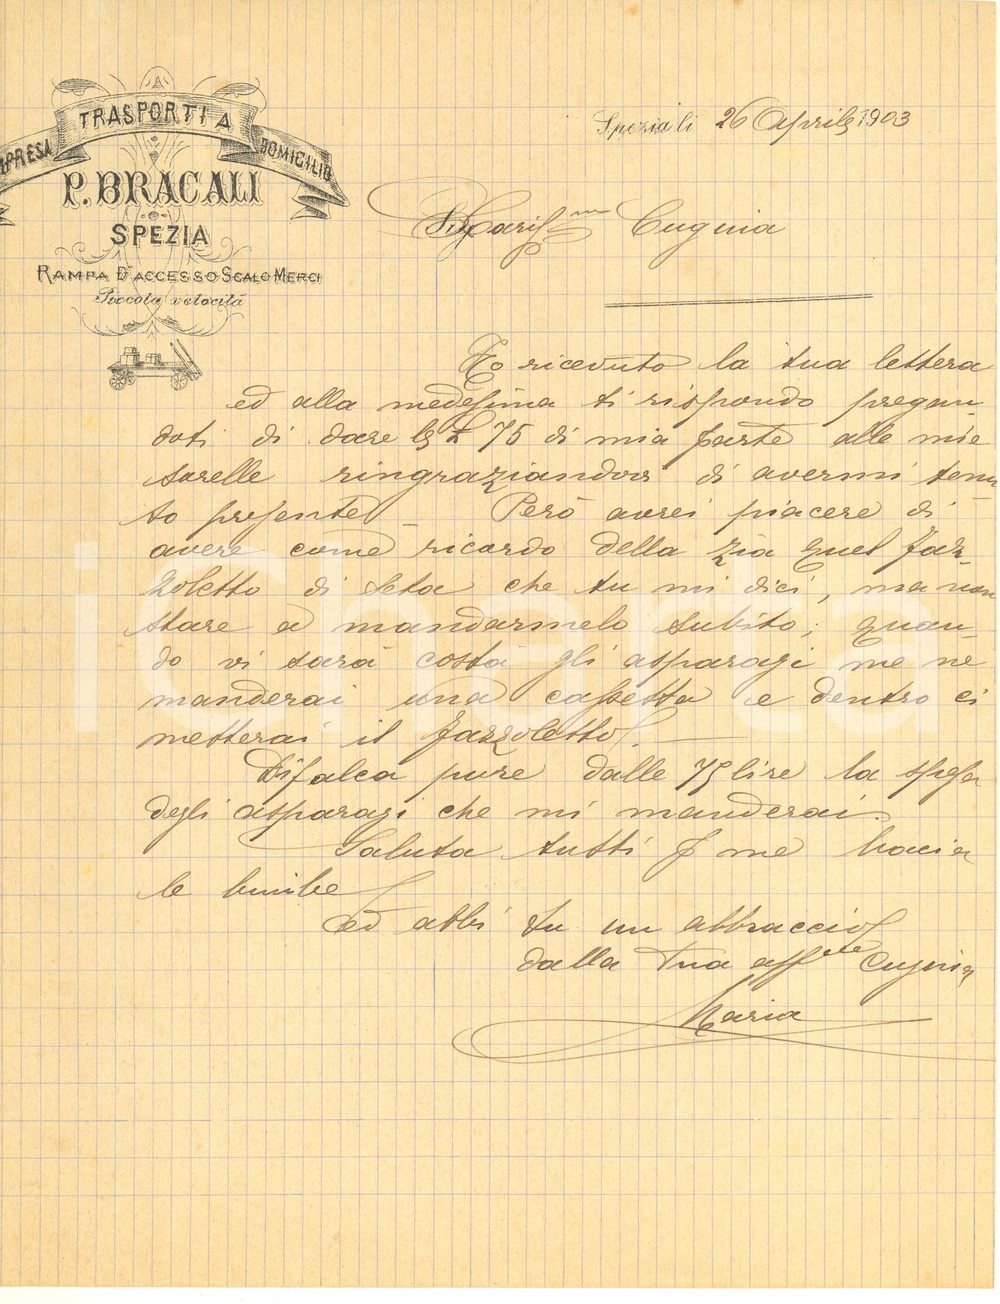 IMPRESA TRASPORTI A DOMICILIO
P. BRACALI
SPEZIA
RAMPA D'ACCESSO SCALO MERCI
Piccola velocità
Spezia li 26 Aprile 1903
Cariss.ma Cugina
Ho ricevuto la tua lettera
ed alla medesima ti rispondo pregan-
doti di dare le £ 75 di mia parte alle mie
sorelle ringraziandovi di avermi tenu
to presente – Però avrei piacere di
avere come ricordo della zia quel faz-
zoletto di seta che tu mi dici, ma non
stare a mandarmelo subito; quan-
do vi sarà costà gli asparagi me ne
manderai una cassetta e dentro ci
metterai il fazzoletto. —
Difalca pure dalle 75 lire la spesa
degli asparagi che mi manderai.
Saluta tutti p me bacia
le bimbe
ed abbi tu un abbraccio
dalla Tua aff.ma Cugina
Maria
iCharta